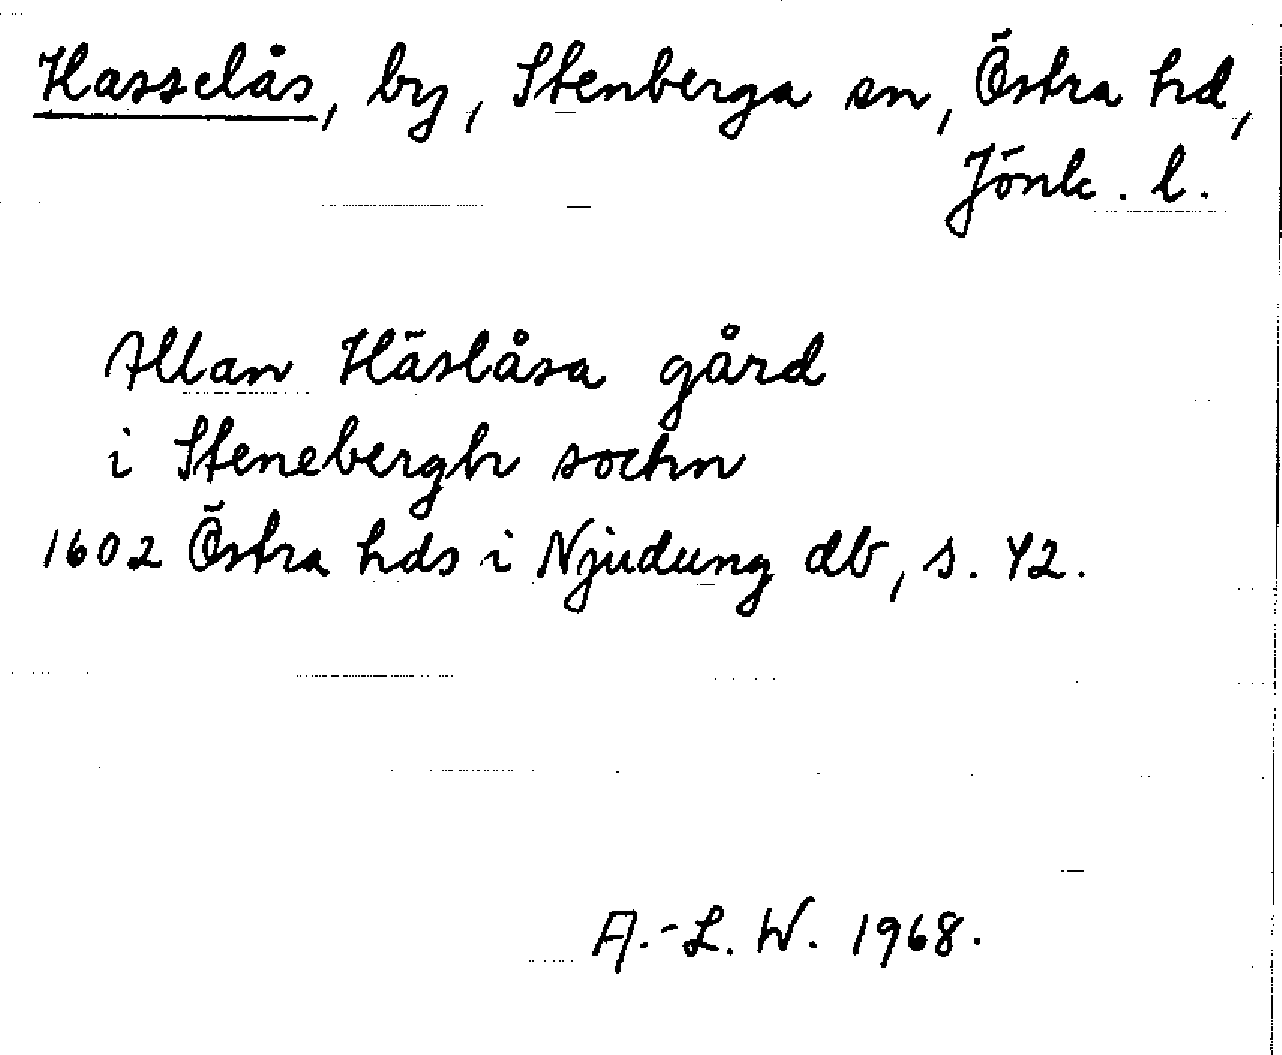 Hasselås, by, Stenberga sn, Östra hd,
Jönk. l.
Allan Häslåsa gård
i Stenebergh sochn
1602 Östra hds i Njudung db, s. 42.
A.-L. W. 1968.